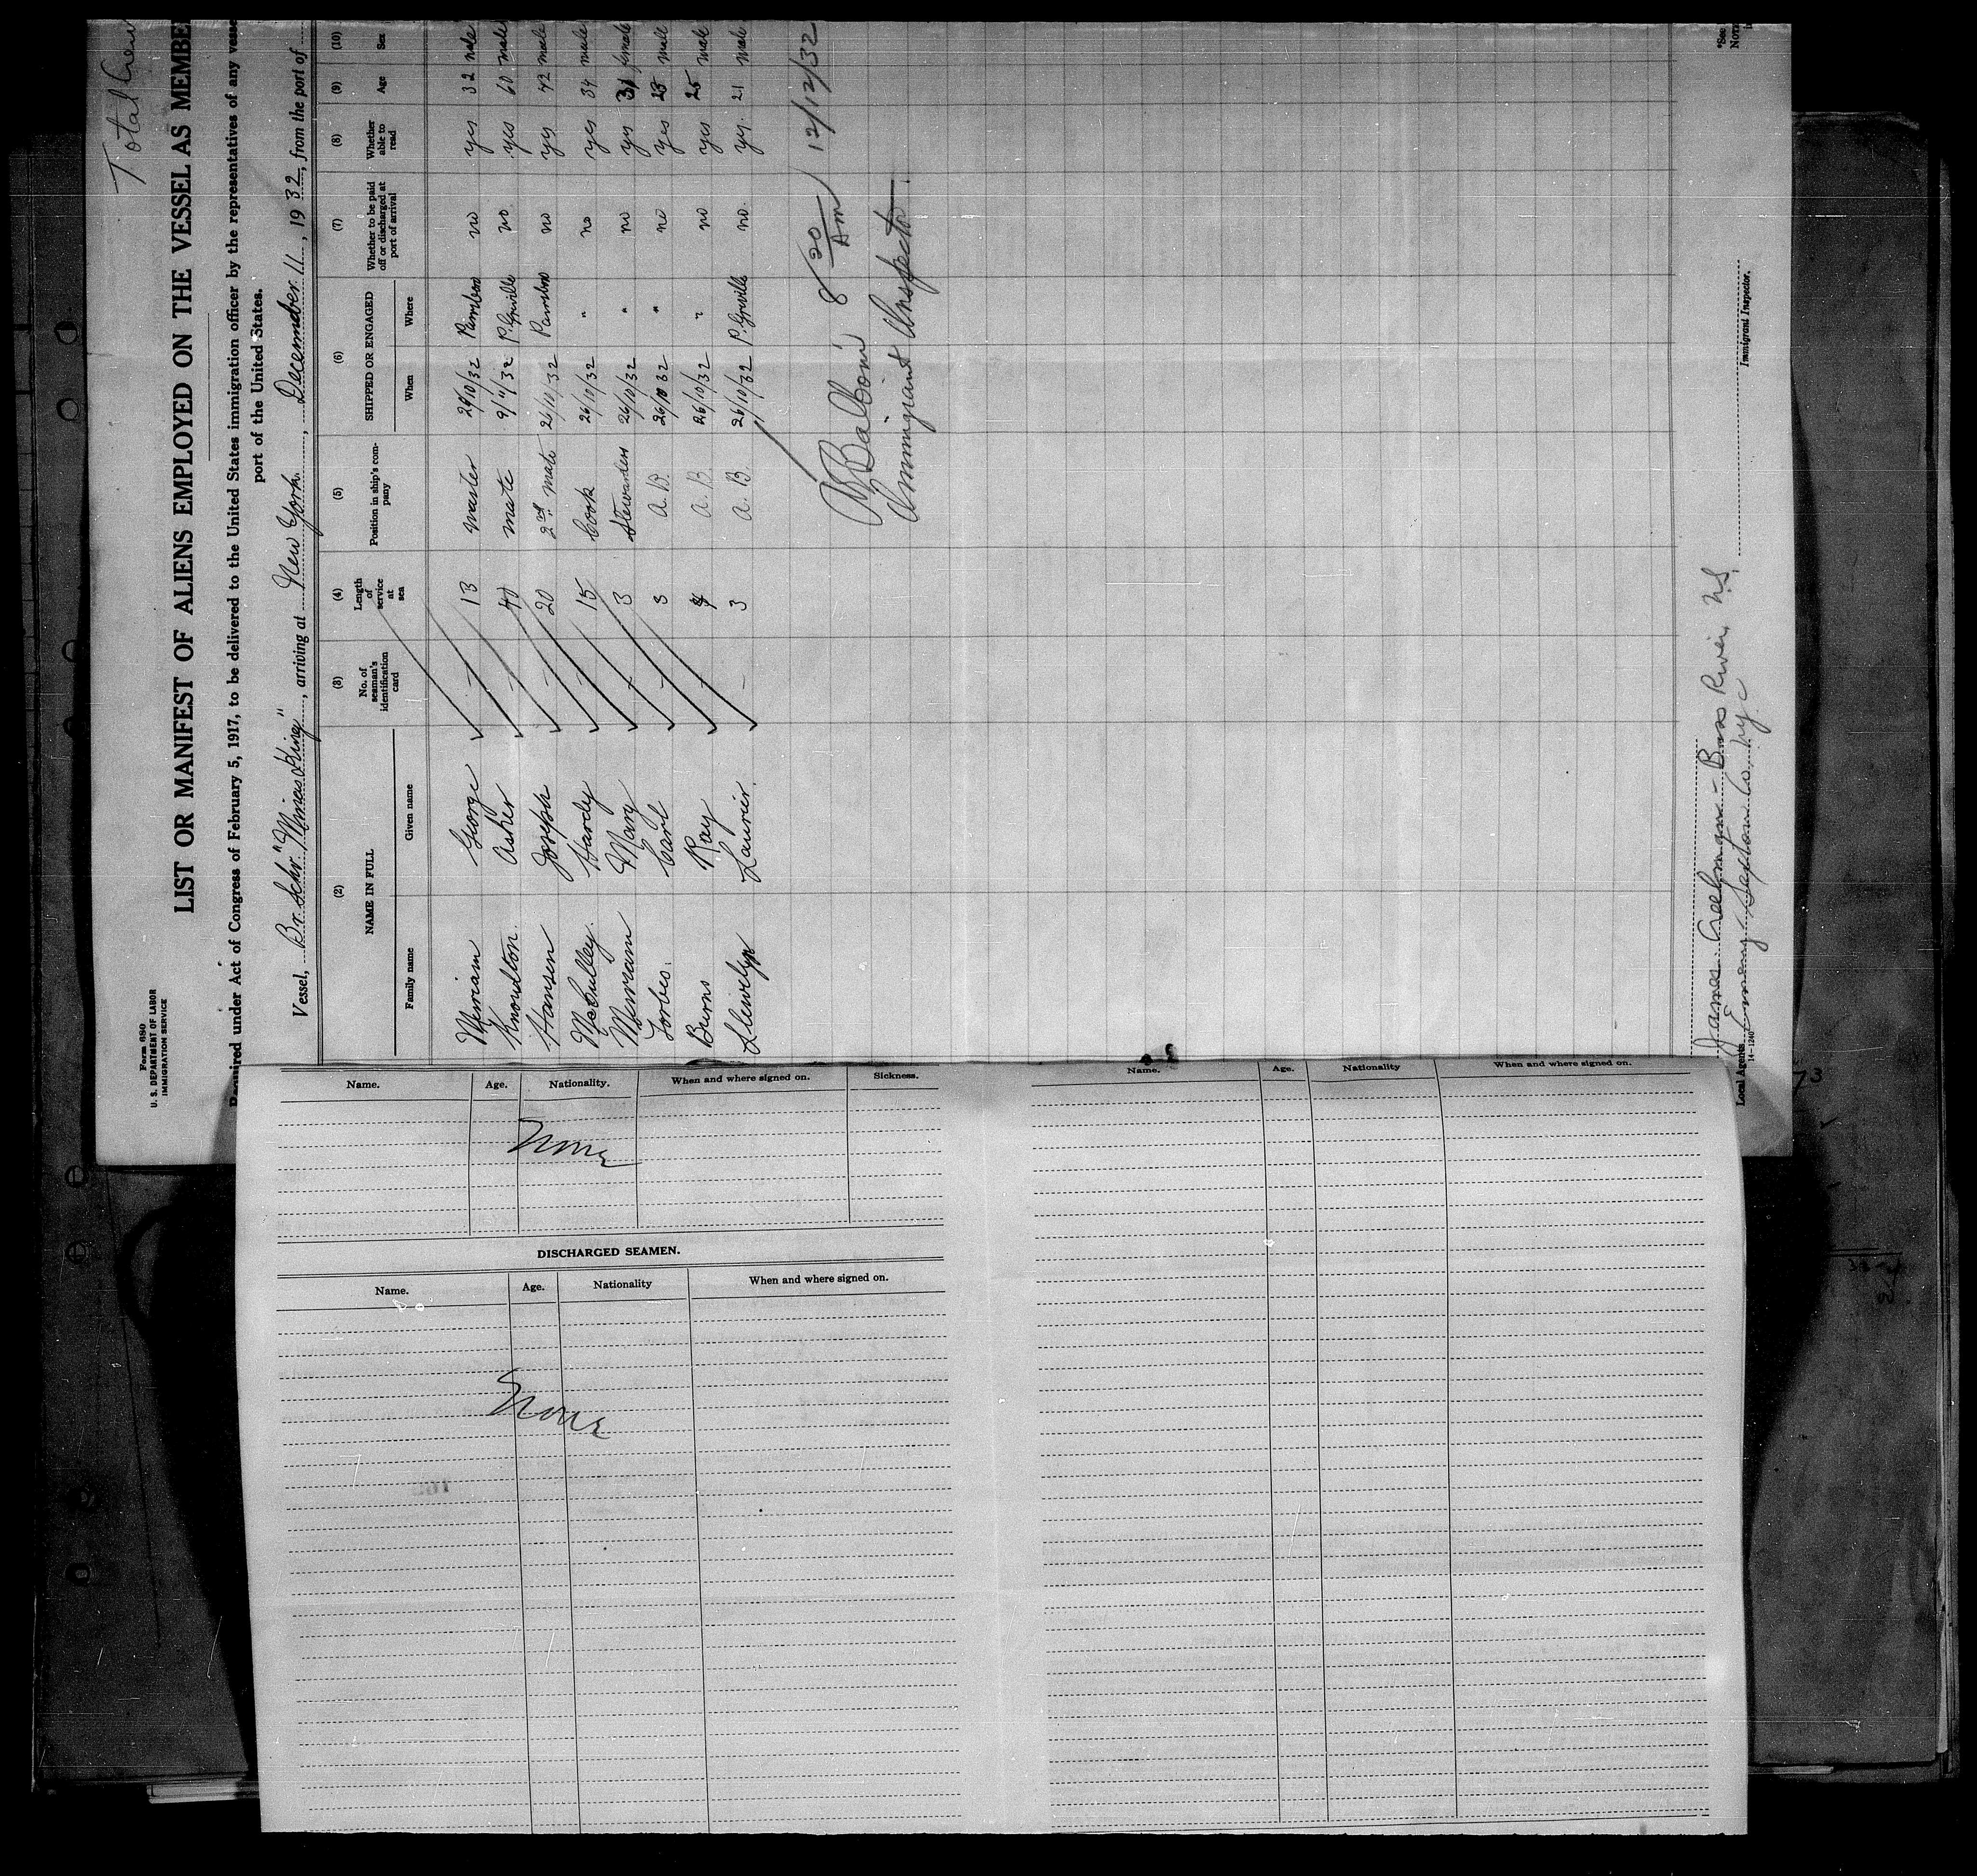 Total Crew
Form 680
U. S. DEPARTMENT OF LABOR
IMMIGRATION SERVICE
LIST OR MANIFEST OF ALIENS EMPLOYED ON THE VESSEL AS MEMBE
Required under Act of Congress of February 5, 1917, to be delivered to the United States immigration officer by the representatives of any vesse
port of the United States.
Vessel, Br. Schr. "Minas King", arriving at New York, December 11, 1932, from the port of
(2) (3) (4) (5) (6) (7) (8) (9) (10)
NAME IN FULL No. of seaman's identification card Length of service at sea Position in ship's company SHIPPED OR ENGAGED Whether to be paid off or discharged at port of arrival Whether able to read Age Sex
Family name Given name When Where
Merriam George 13 master 26/10/32 Parrsboro no yes 32 male
Knowlton Asher 40 mate 9/11/32 P. Greville no yes 60 male
Hansen Joseph 20 2nd mate 26/10/32 Parrsboro no yes 42 male
McCulley Hardy 15 Cook 26/10/32 " no yes 34 male
Merriam Mary 3 Stewardess 26/10/32 " no yes 31 female
Forbes Carl 3 A. B. 26/10/32 " no yes 23 male
Burns Ray 4 A. B. 26/10/32 " no yes 25 male
Llewelyn Laurier 3 A. B. 26/10/32 P. Greville no yes 21 male
8 20/Am 12/12/32
Immigrant Inspector
James - Bass River, N.S.
Local Agents Co. nyc
14-1240
Immigrant Inspector.
*See
Name. Age. Nationality. When and where signed on. Sickness.
None
DISCHARGED SEAMEN.
Name. Age. Nationality When and where signed on.
None
Name. Age. Nationality When and where signed on.